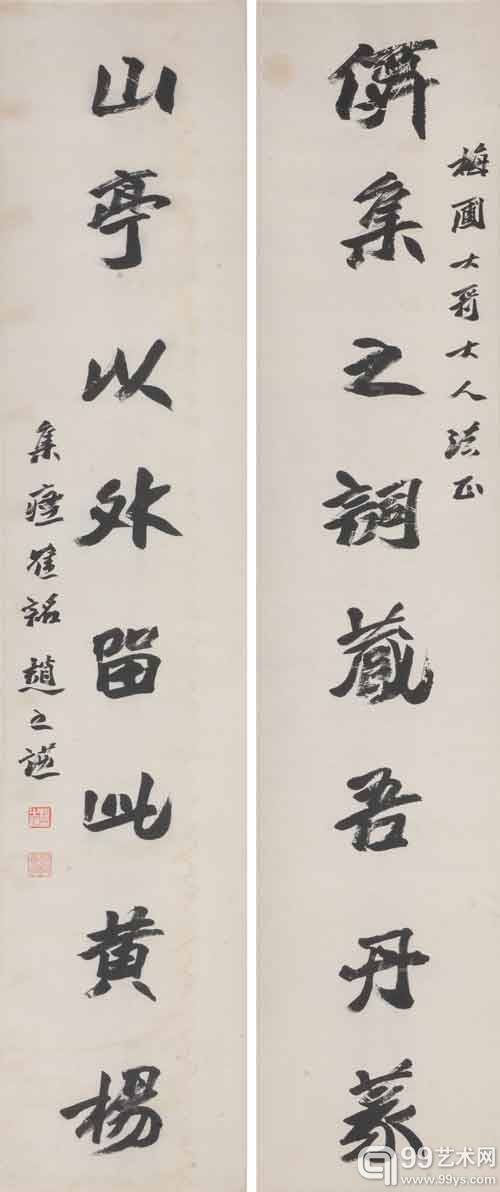 梅圃大哥大人法正
集之詞藏吾丹篆
山亭以外留此黃楊
集瘞隺銘 趙之謙
99艺术网
www.99ys.com